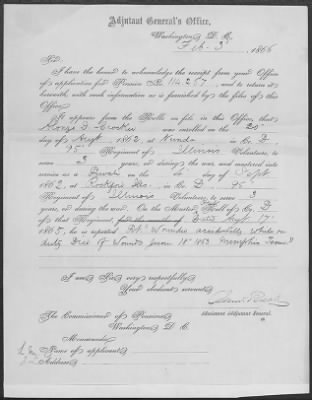 Adjutant General's Office,
Washington, D. C.
Feb. 3, 1866
Sir:
I have the honor to acknowledge the receipt from your Office
of application for Pension No. 114.257, and to return it
herewith, with such information as is furnished by the files of this
Office.
It appears from the Rolls on file in this Office, that
George D. Crocker was enrolled on the 20
day of Augt 1862, at Nunda in Co. D
95 Regiment of Illinois Volunteers, to
serve 3 years, or during the war, and mustered into
service as a Privat on the 4 day of Sept
1862, at Rockford Ills. in Co. D 95
Regiment of Illinois Volunteers, to serve 3
years, or during the war. On the Muster Roll of Co. D
of that Regiment, Augt 17
1865, he is reported Wounded accidentally while on
duty Died of Wounds June 18 1863 Memphis Tenn
I am, Sir, very respectfully,
Your obedient servant,
Assistant Adjutant General.
The Commissioner of Pensions,
Washington, D. C.
Memoranda:
Name of applicant
Address